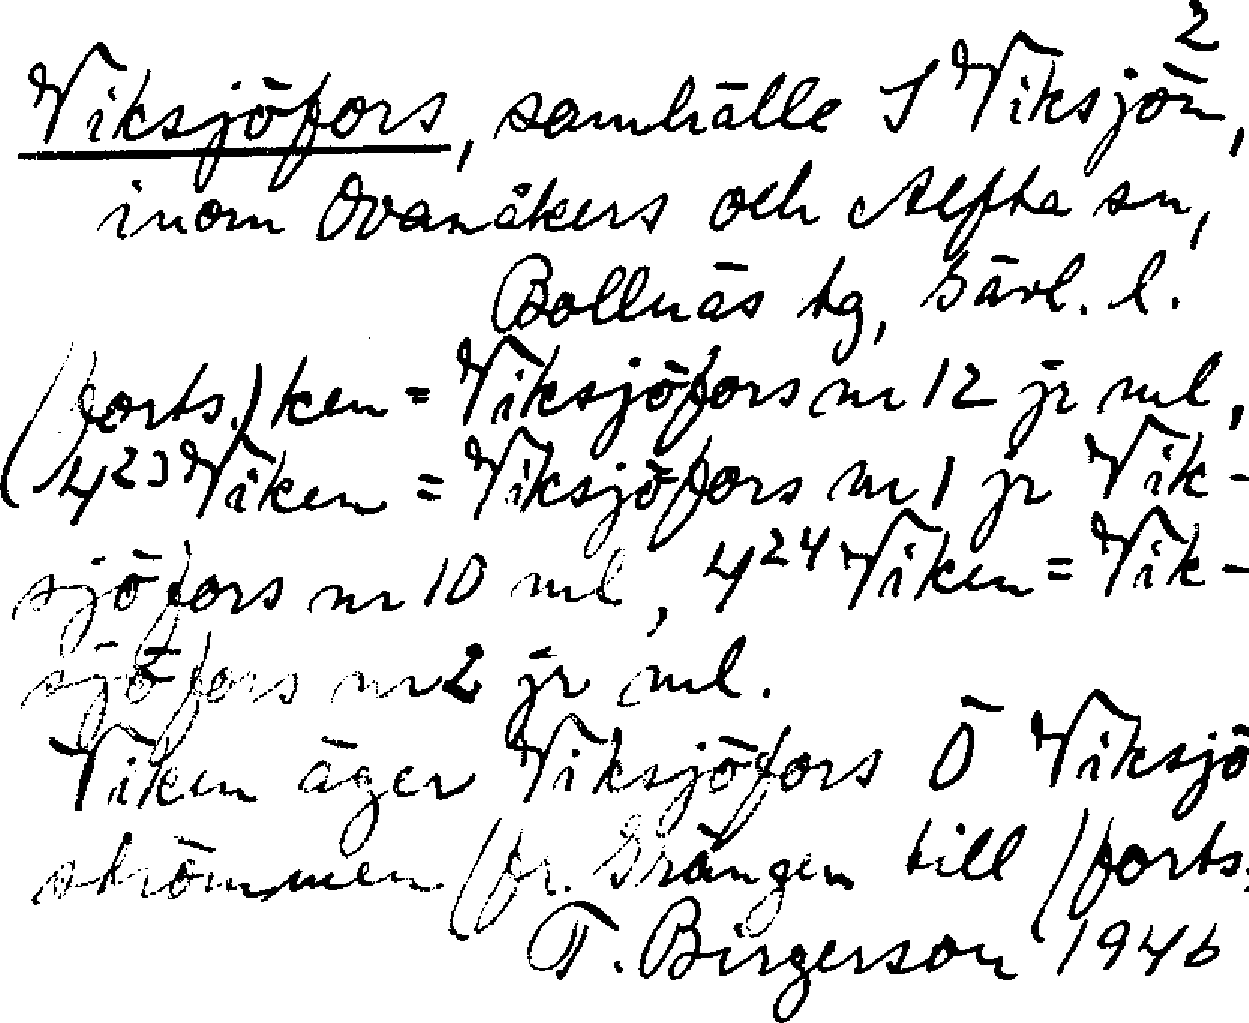 2
Viksjöfors, samhälle S Viksjön,
inom Ovanåkers och Alfta sn,
Bollnäs tg, Gävl. l.
(forts.) ken = Viksjöfors nr 12 jr ml,
4²³ Viken = Viksjöfors nr 1 jr Vik-
sjöfors nr 10 ml, 4²⁴ Viken = Vik-
sjöfors nr 2 jr ml.
Viken äger Viksjöfors Ö Viksjö
strömmen (fr. Grängen till (forts.
T. Birgerson 1946